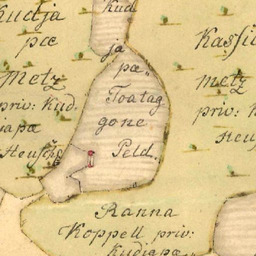 Kudja
pæ
Metz
priv: Kud.
japa
Kud
ja
pæ
Toatag
gone
Peld.
Kassi
metz
priv: K
Ranna
Koppell priv:
Kudjapæ